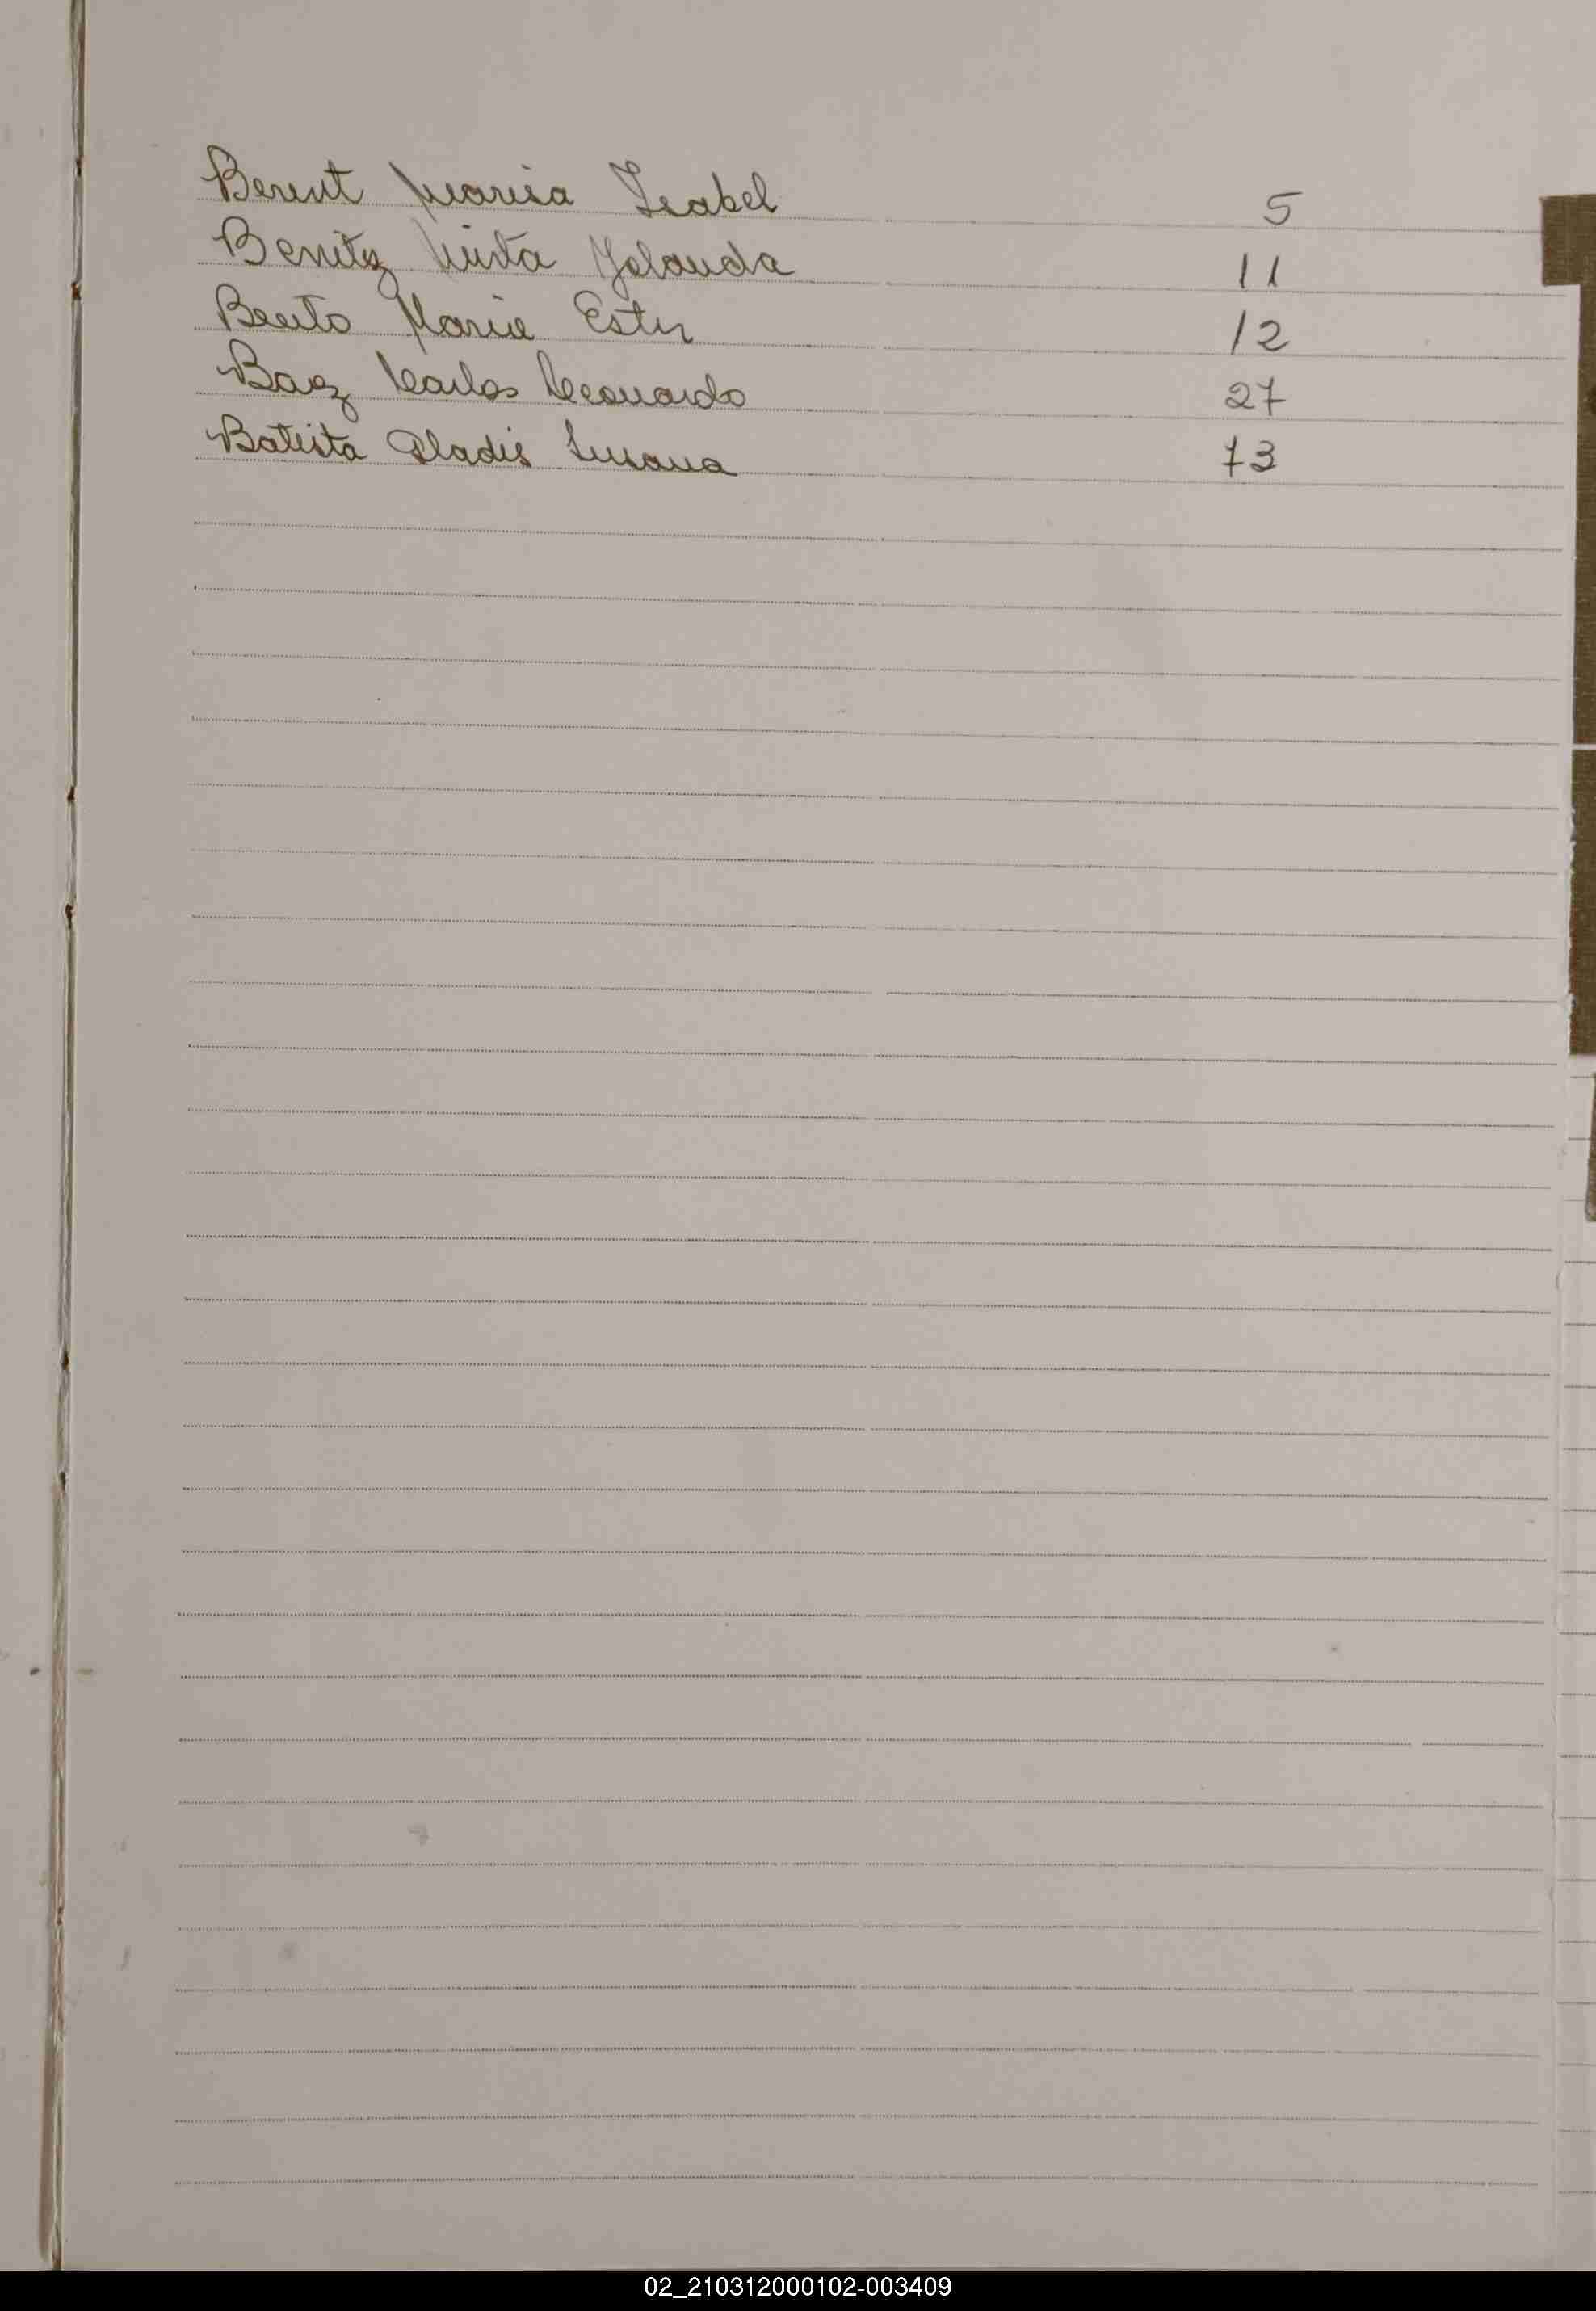 Berent Marisa Isabel 5
Benitez Mirta Yolanda 11
Bento Maria Ester 12
Baez Carlos Leonardo 27
Batista Gladis Susana 73
02_210312000102-003409